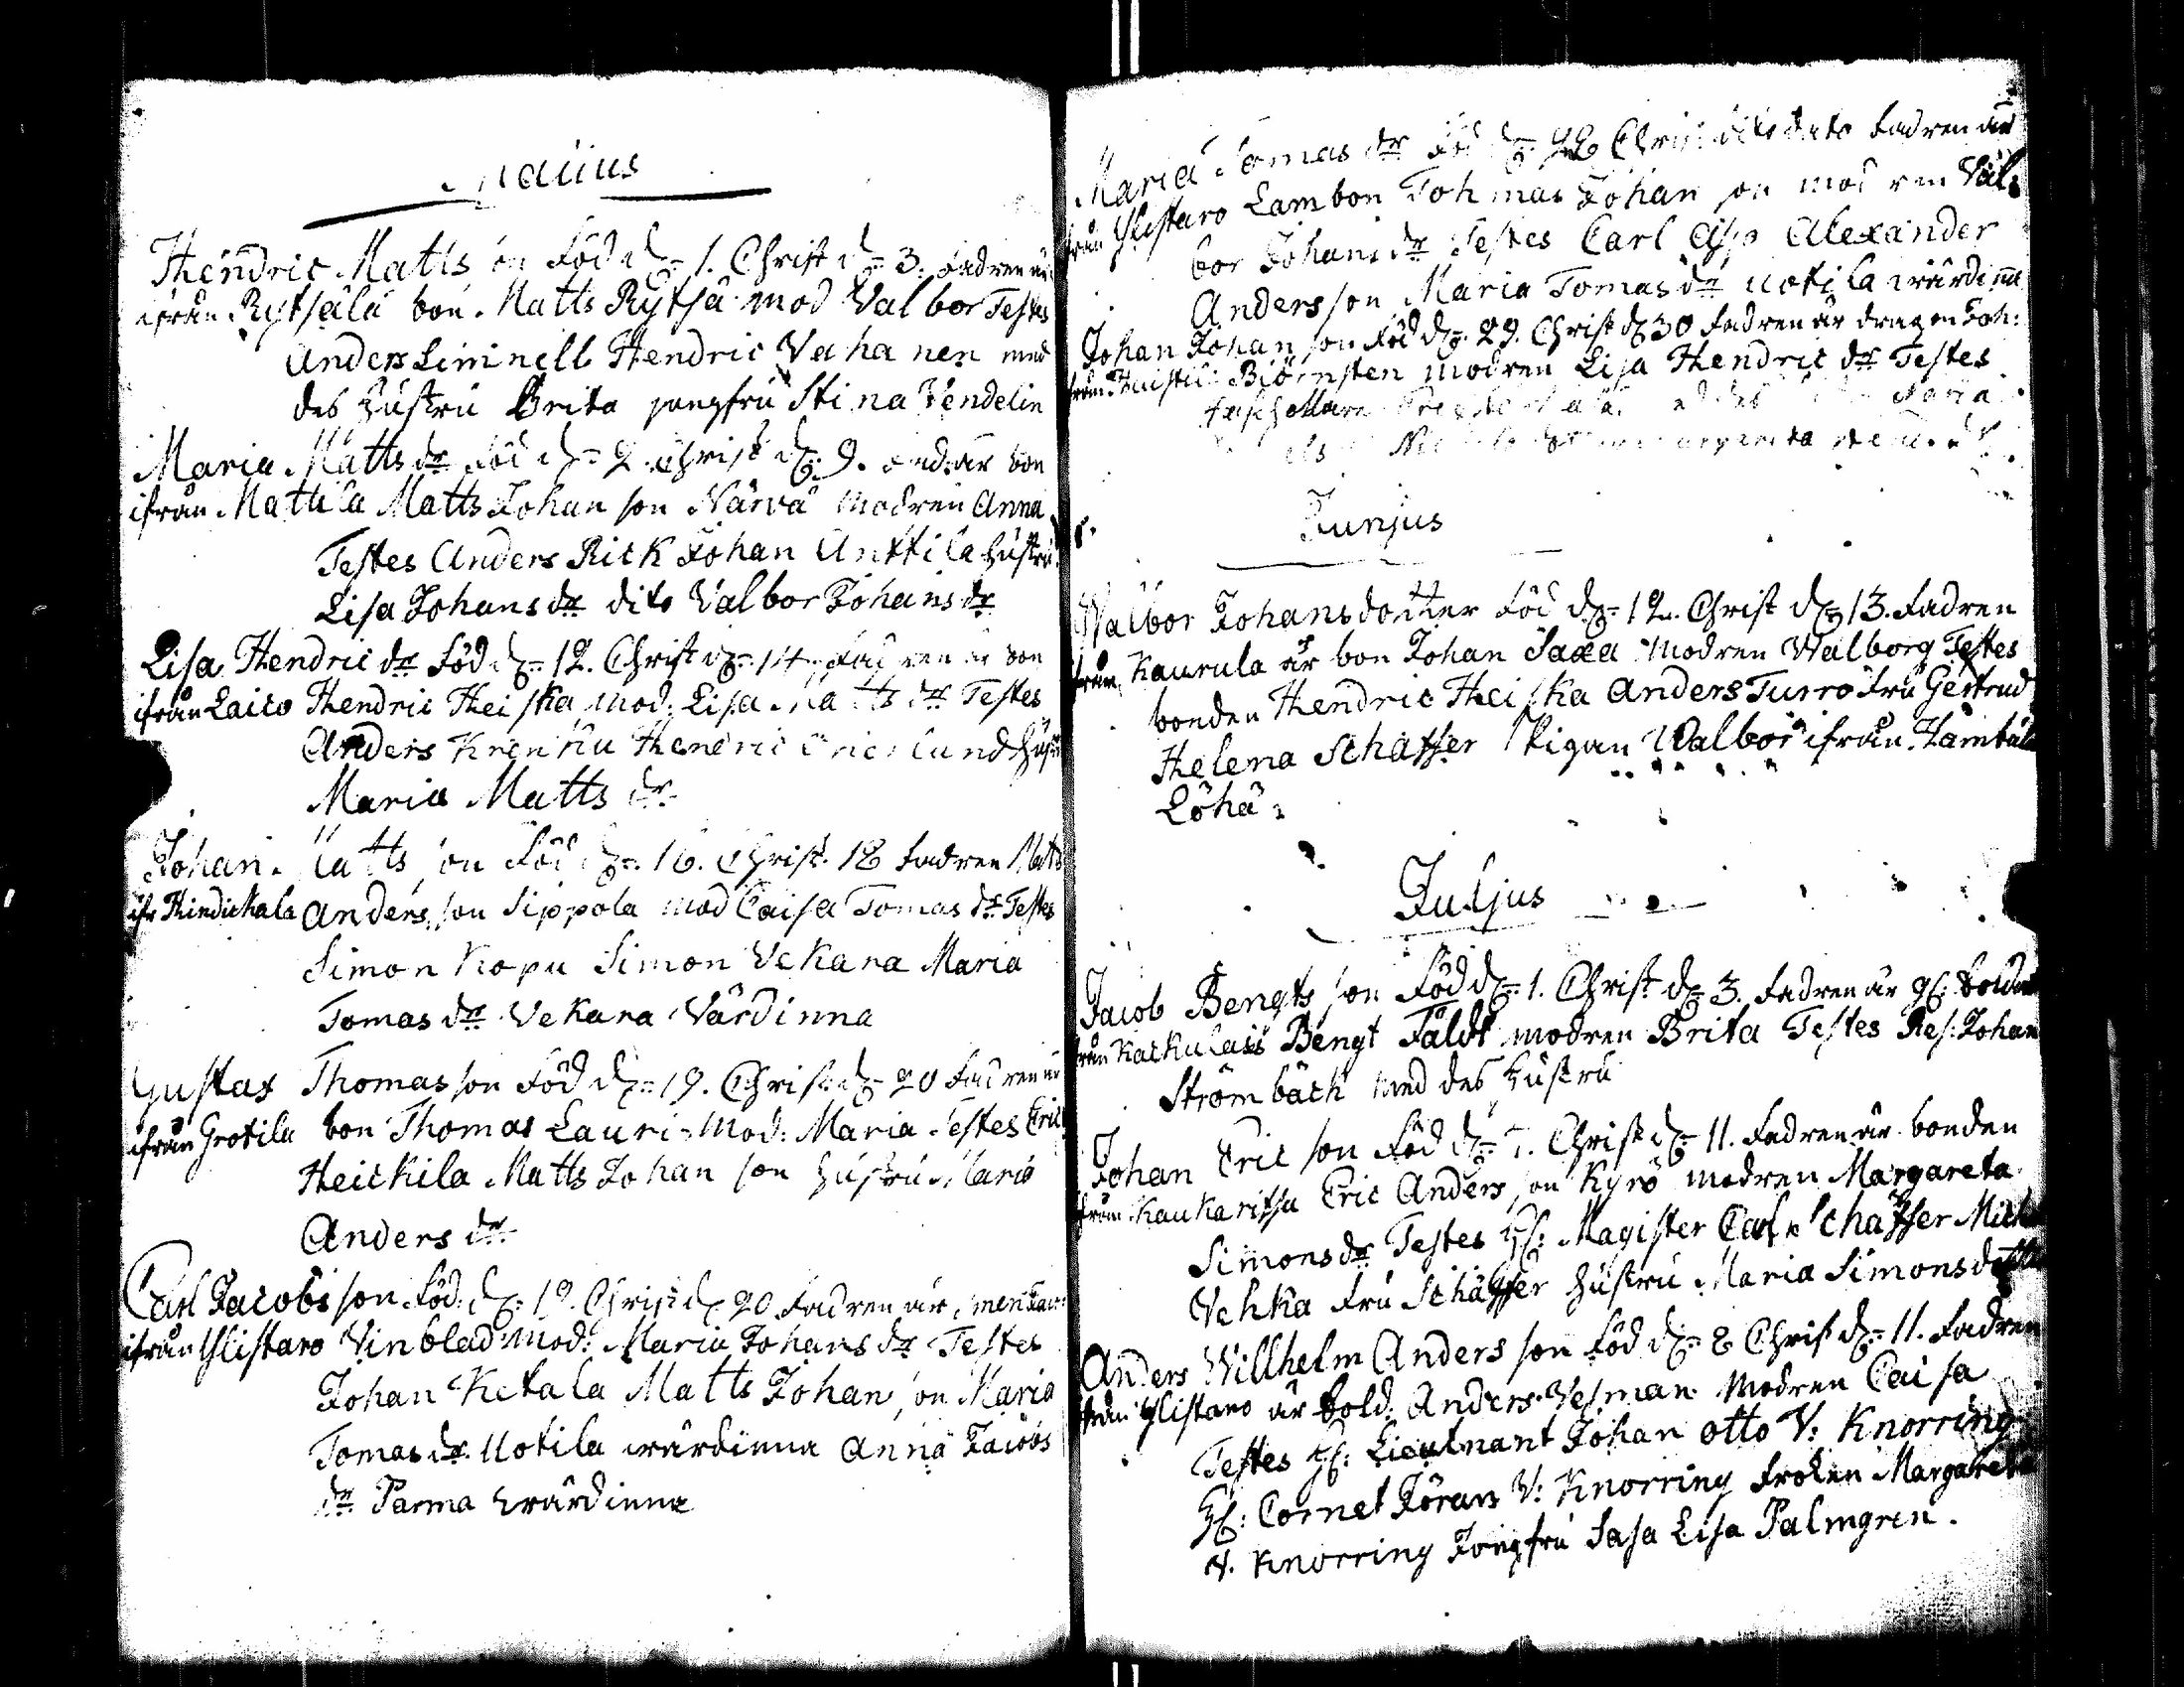 Maiius
Hendric Matts son Föd d. 1. Christ d. 3. Fadren är
ifrån Rytsälä bon. Matts Rytsä mod Valbor Testes
Anders Limnell Hendric Vahanen med
des hustru Brita jungfru Stina Vendelin
Maria Matts dr Föd d. 2. Christ d. 9. Fad: är bon
ifrån Mattila Matts Johan son Närvä modren Anna
Testes Anders Rick Johan Anttila hustru
Lisa Johans dr dito Valbor Johans dr
Lisa Hendric dr Föd d. 12. Christ d. 14. Fadren är bon
ifrån Laico Hendric Heiska mod: Lisa Matts dr Testes
Anders Krenku Hendric Ericslund hust
Maria Matts dr
Johan Matts son Föd d. 16. Christ. 18 Fadren Matts
ifr Hindickala Anders son Sippola mod Caisa Tomas dr Testes
Simon Kopu Simon Vekara Maria
Tomas dr Vekara Värdinna
Gustaf Thomas son Föd d. 19. Christ d. 20 Fadren är
ifrån Grotila bon Thomas Lauri mod: Maria Testes Eric
Heickila Matts Johan son hustru Maria
Anders dr
Carl Jacobs son Föd: d. 19. Christ d. 20 Fadren är
ifrån Ylistaro Vinblad mod: Maria Johans dr Testes
Johan Ketala Matts Johan son Maria
Tomas dr Uotila wärdinna Anna Jacobs
dr Parma wärdinna
Maria Tomas dr Föd d. Christ dito dato Fadren är
från Ylistaro Lambon Tohmas Johan son modren Val:
bor Johans dr Testes Carl Asp Alexander
Andersson Maria Tomas dr Uotila wärdinna
Johan Johan son Föd d. 29. Christ d. 30 Fadren är dragon Joh:
från Biörnsten modren Lisa Hendric dr Testes
Junjus
Walbor Johansdotter Föd d. 12. Christ d. 13. Fadren
från Kaurula är bon Johan Saxa modren Walborg Testes
bonden Hendric Heiska Anders Turro fru Gertrud
Helena Schäffer Pigan Walbor ifrån
Löhä
Juljus
Jacob Bengts son Föd d. 1. Christ d. 3. Fadren är
från Karkulais Bengt Fäldt modren Brita Testes Res: Johan
Strömbäck med des hustru
Johan Eric son Föd d. Christ d. 11. Fadren är bonden
från Kaukaritsa Eric Anders son Kyrö modren Margareta
Simons dr Testes H: Magister Carl Schäffer
Vehka fru Schäffer hustru Maria Simonsdotter
Anders Willhelm Anders son Föd d. 8 Christ d. 11. Fadren
från Ylistaro är Sold: Anders Vesman modren Caisa
Testes H: Lieutnant Johan Otto V: Knorring
H: Cornet Jöran V: Knorring fröken Margareta
V. Knorring Jungfru Sasa Lisa Palmgren.